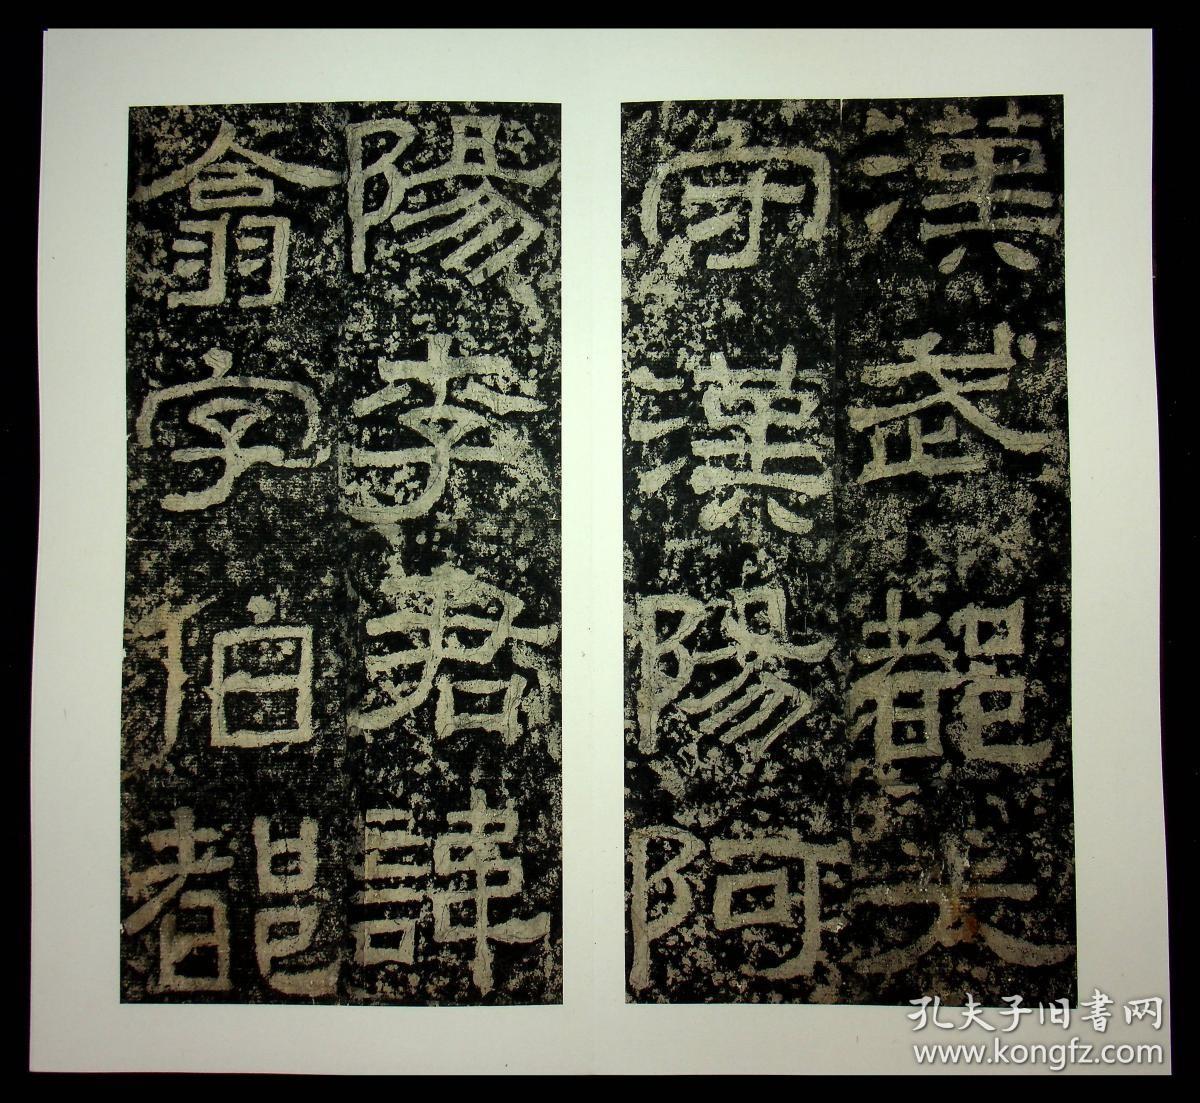 漢武都太
守漢陽阿
陽李君諱
翕字伯都
孔夫子旧書网
www.kongfz.com